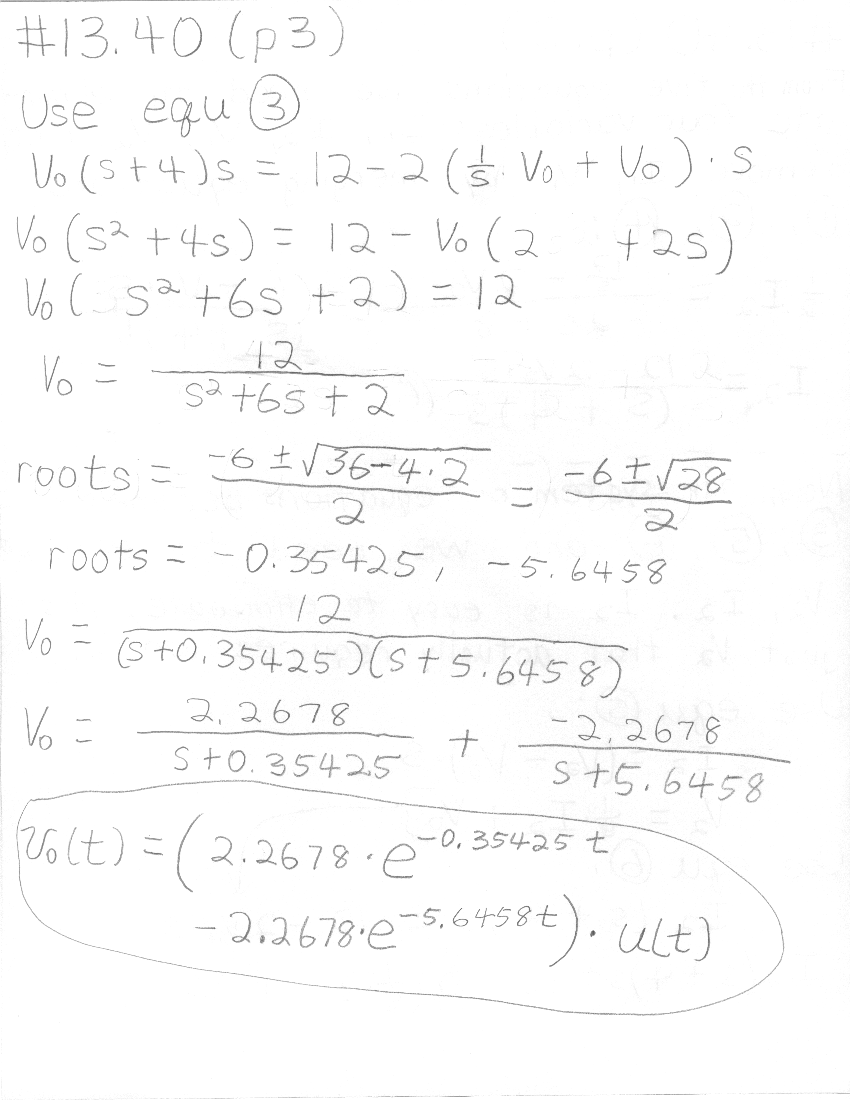 #13.40 (p3)
Use equ ③
V₀(s+4)s = 12-2(1/s · V₀ + V₀) · s
V₀(s²+4s) = 12 - V₀(2 +2s)
V₀( s²+6s +2) = 12
V₀ = 12/(s²+6s+2)
roots = (-6±√(36-4·2))/2 = (-6±√28)/2
roots = -0.35425, -5.6458
V₀ = 12/((s+0.35425)(s+5.6458))
V₀ = 2.2678/(s+0.35425) + -2.2678/(s+5.6458)
v₀(t) = (2.2678·e^(-0.35425t)
-2.2678·e^(-5.6458t))·u(t)